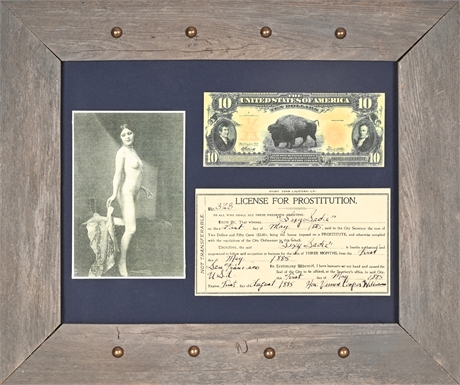 10 THE UNITED STATES OF AMERICA 10
TEN DOLLARS
10 10
LICENSE FOR PROSTITUTION.
No. 328
NOT TRANSFERABLE.
TO ALL WHO SHALL SEE THESE PRESENTS GREETING:
KNOW YE, That whereas "Sexy Sadie"
on the First day of May 1885, paid to the City Treasurer the sum of
Two Dollars and Fifty Cents ($2.50), being the license imposed on a PROSTITUTE, and otherwise complied
with the regulations of the City Ordinances in this behalf.
THEREFORE, the said "Sexy Sadie" is hereby authorized and
empowered to follow said occupation or business for the term of THREE MONTHS, from the First
day of May, 1885
San Francisco
U.S.A.
IN TESTIMONY WHEREOF, I have hereunto set my hand and caused the
Seal of the City to be affixed, at the Secretary's office, in said City,
this First day of May 1885
Expires First of August 1885